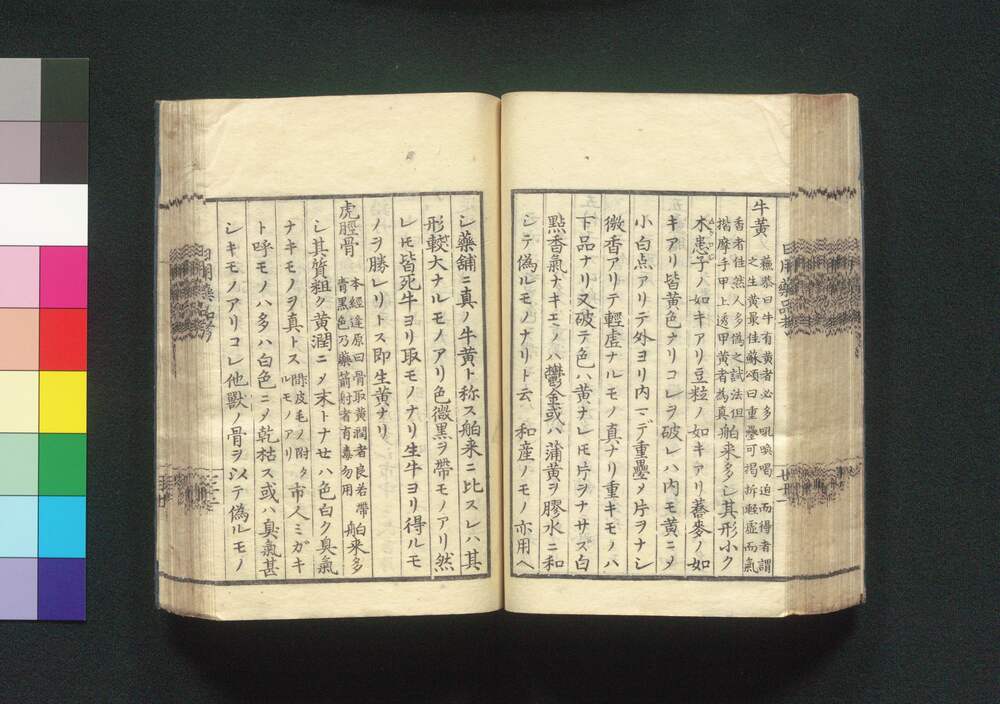 牛黄 蘇恭曰牛有黄者必多吼喚喝迫而得者謂
之生黄最佳蘇頌曰重疊可掲拆軽虚而氣
香者佳然人多偽之試法但
揩摩手甲上透甲黄者為真 舶来多シ其形小ク
木患子ノ如キアリ豆粒ノ如キアリ蕎麥ノ如
キアリ皆黄色ナリコレヲ破レハ内モ黄ニメ
小白点アリテ外ヨリ内マデ重疊メ片ヲナシ
微香アリテ輕虚ナルモノ真ナリ重キモノハ
下品ナリ又破テ色ハ黄ナレㇳモ片ヲナサズ白
點香氣ナキモノハ鬱金或ハ蒲黄ヲ膠水ニ和
シテ偽ルモノナリト云 和産ノモノ亦用ヘ
シ藥舗ニ真ノ牛黄ト称ス舶来ニ比スレハ其
形較大ナルモノアリ色微黒ヲ帶モノアリ然
レㇳモ皆死牛ヨリ取モノナリ生牛ヨリ得ルモ
ノヲ勝レリトス即生黄ナリ
虎脛骨 本經逢原曰骨取黄潤者良若帶
青黒色乃藥箭射者有毒勿用 舶来多
シ其質粗ク黄潤ニメ末トナセハ色白ク臭氣
ナキモノヲ真トス 間皮毛ノ附タ
ルモノアリ 市人ミガキ
ト呼モノハ多ハ白色ニメ乾枯ス或ハ臭氣甚
シキモノアリコレ他獸ノ骨ヲ以テ偽ルモノ